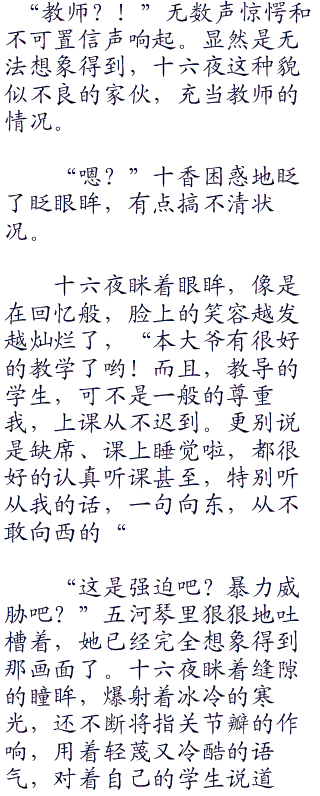 “教师？！”无数声惊愕和
不可置信声响起。显然是无
法想象得到，十六夜这种貌
似不良的家伙，充当教师的
情况。
“嗯？”十香困惑地眨
了眨眼眸，有点搞不清状
况。
十六夜眯着眼眸，像是
在回忆般，脸上的笑容越发
越灿烂了，“本大爷有很好
的教学了哟！而且，教导的
学生，可不是一般的尊重
我，上课从不迟到。更别说
是缺席、课上睡觉啦，都很
好的认真听课甚至，特别听
从我的话，一句向东，从不
敢向西的“
“这是强迫吧？暴力威
胁吧？”五河琴里狠狠地吐
槽着，她已经完全想象得到
那画面了。十六夜眯着缝隙
的瞳眸，爆射着冰冷的寒
光，还不断将指关节瓣的作
响，用着轻蔑又冷酷的语
气，对着自己的学生说道